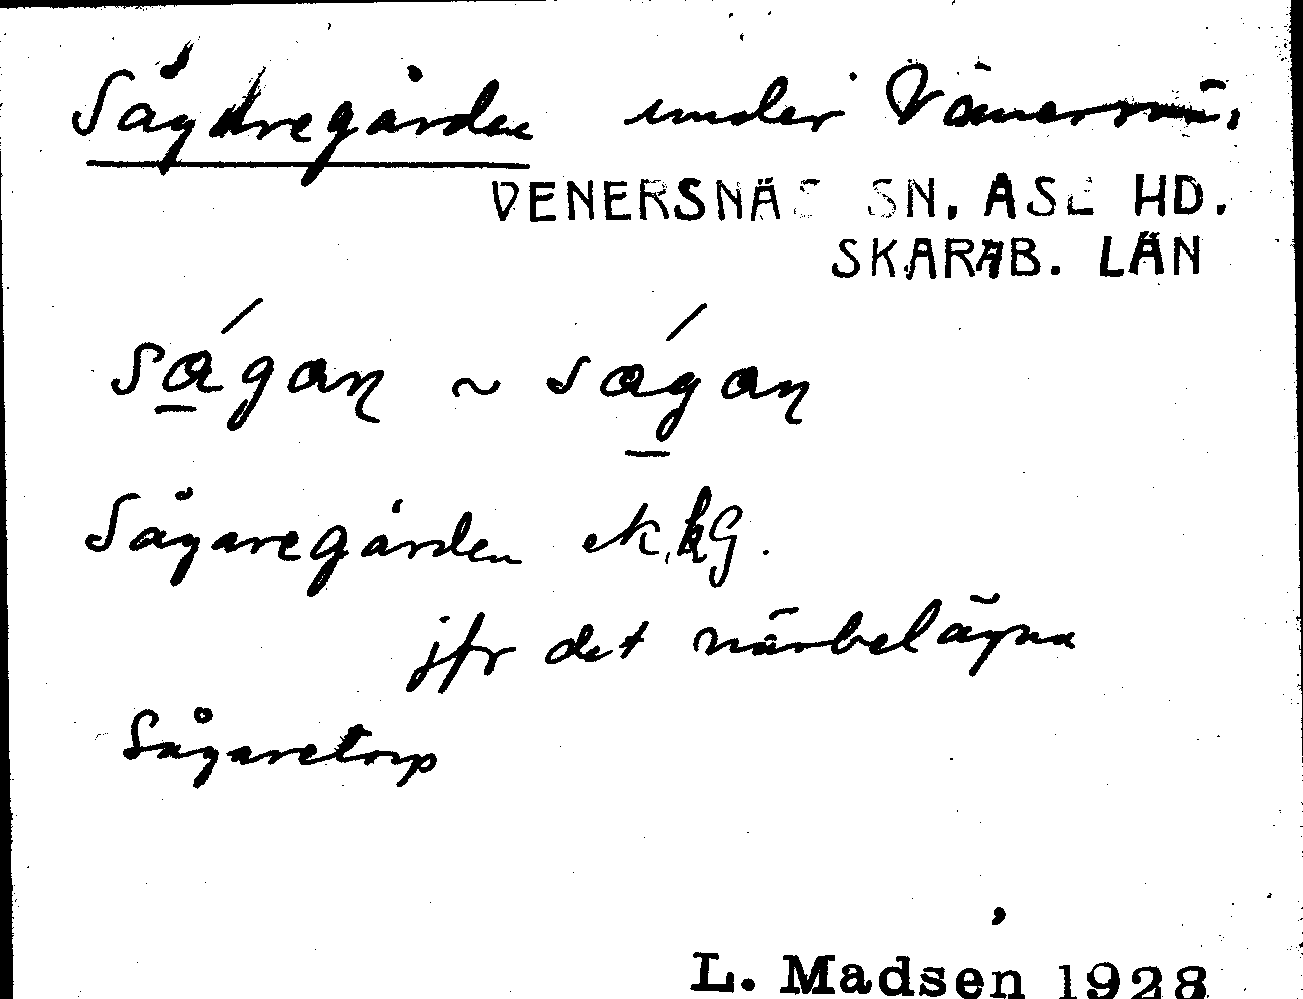 Sågaregården under Vänersnäs
VENERSNÄS SN. ASE HD.
SKARAB. LÄN
ságan ~ ságan
Sågaregården
jfr det närbelägna
Sågaretorp
L. Madsen 1928